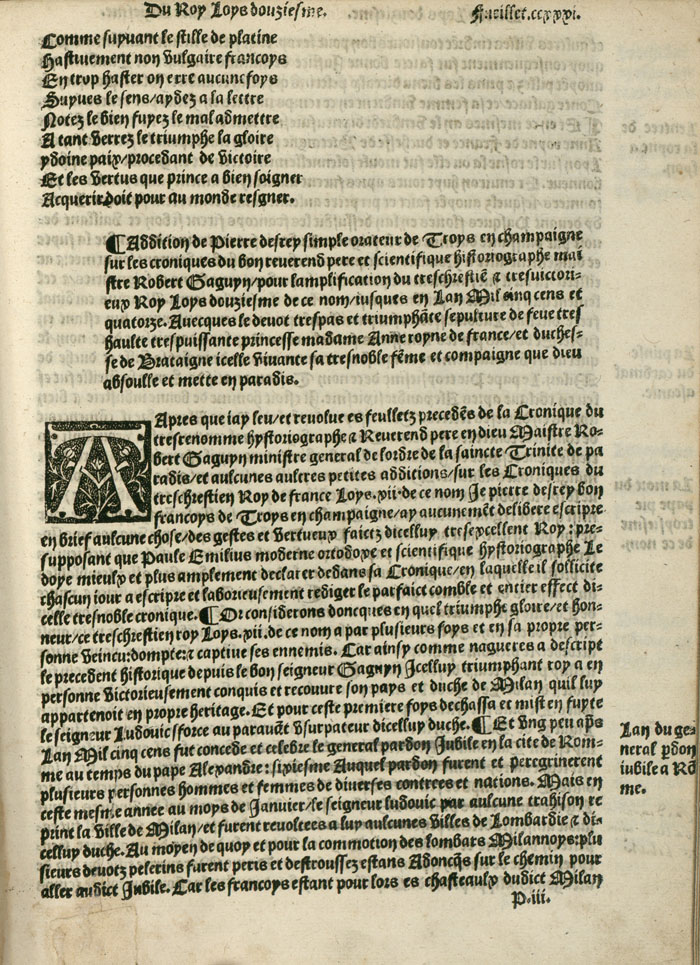 Du Roy Loys douziesme.
Fueillet.ccxxxi.
Comme suyuant le stille de platine
Hastiuement non vulgaire francoys
En trop haster on erre aucunes foys
Suyues le sens/aydez a la lettre
Notez le bien fuyez le mal admettre
A tant verrez le triumphe la gloire
ydoine paix/procedant de victoire
Et les vertus que prince a bien soigner
Acquerir doit pour au monde resgner.
¶Addition de Pierre desrey simple orateur de Troys en champaigne
sur les croniques du bon reuerend pere et scientifique historiographe mai
stre Robert Gaguyn/pour lamplification du treschrestiē & tresuictori-
eux Roy Loys douziesme de ce nom/iusques en Lan Mil cinq cens et
quatorze. Auecques le deuot trespas et triumphāte sepulture de feue tres
haulte trespuissante princesse madame Anne royne de france/et duches-
se de Bretaigne icelle viuante sa tresnoble fēme et compaigne que dieu
absoulle et mette en paradis.
Apres que iay leu/et reuolue es feulletz precedēs de la Cronique du
tresrenomme hystoriographe & Reuerend pere en dieu Maistre Ro-
bert Gaguyn ministre general de lordre de la saincte Trinite de pa
radis/et aulcunes aultres petites additions/sur les Croniques du
treschrestien Roy de france Loys.xii.de ce nom Je pierre desrey bon
francoys de Troys en champaigne/ay aucunemēt delibere escripre
en brief aulcune chose/des gestes et vertueux faictz dicelluy tresexcellent Roy: pre-
supposant que Paule Emilius moderne ortodoxe et scientifique hystoriographe Le
doye mieulx et plus amplement declarer dedans sa Cronique/en laquelle il sollicite
chascun iour a escripre et laborieusement rediger le parfaict comble et entier effect di-
celle tresnoble cronique. ¶Or considerons doncques en quel triumphe gloire/et hon-
neur/ce treschrestien roy Loys.xii.de ce nom a par plusieurs foys et en sa propre per-
sonne veincu:dompte:& captiue ses ennemis. Car ainsy comme nagueres a descript
le precedent historique depuis le bon seigneur Gaguyn Jcelluy triumphant roy a en
personne victorieusement conquis et recouure son pays et duche de Milan quil luy
appartenoit en propre heritage. Et pour ceste premiere foys dechassa et mist en fuyte
le seigneur Ludouic sforce au parauāt vsurpateur dicelluy duche. ¶Et vng peu aps
Lan Mil cinq cens fut concede et celebre le general pardon Jubile en la cite de Rom-
me au temps du pape Alexandre: sixiesme Auquel pardon furent et peregrinerent
plusieurs personnes hommes et femmes de diuerses contrees et nations. Mais en
ceste mesme annee au moys de Januier/le seigneur ludouic par aulcune trahison re
print la ville de Milan/et furent reuoltees a luy aulcunes villes de Lombardie & di-
celluy duche. Au moyen de quoy et pour la commotion des lombars Milannoys:plu
sieurs deuotz pelerins furent peris et destroussez estans Adoncqs sur le chemin pour
aller audict Jubile. Car les francoys estant pour lors es chasteaulx dudict Milan
Lan du ge-
neral pdon
iubile a Rō
me.
P.iii.